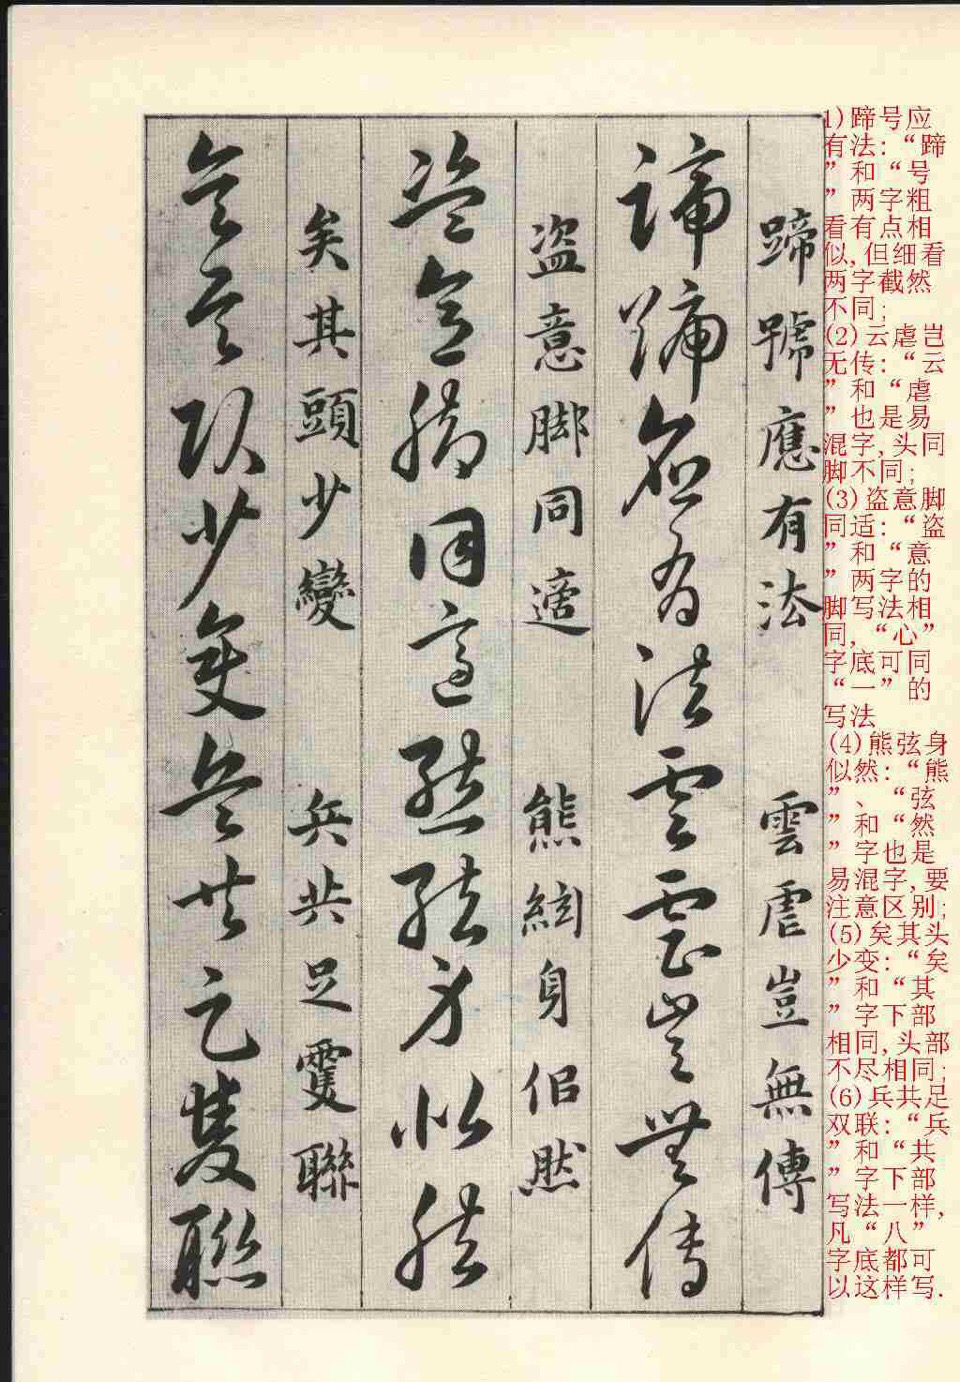 1)蹄号应
有法:“蹄
”和“号
”两字粗
看有点相
似,但细看
两字截然
不同;
(2)云虐岂
无传:“云
”和“虐
”也是易
混字,头同
脚不同;
(3)盗意脚
同适:“盗
”和“意
”两字的
脚写法相
同,“心”
字底可同
“一”的
写法
(4)熊弦身
似然:“熊
”、“弦
”和“然
”字也是
易混字,要
注意区别;
(5)矣其头
少变:“矣
”和“其
”字下部
相同,头部
不尽相同;
(6)兵共足
双联:“兵
”和“共
”字下部
写法一样,
凡“八”
字底都可
以这样写.
蹄號應有法 雲虐豈無傳
蹄號應有法雲虐豈無傳
盜意脚同適 熊絃身佀然
盜意脚同適熊絃身似然
矣其頭少變 兵共足雙聯
矣其頭少變兵共足雙聯